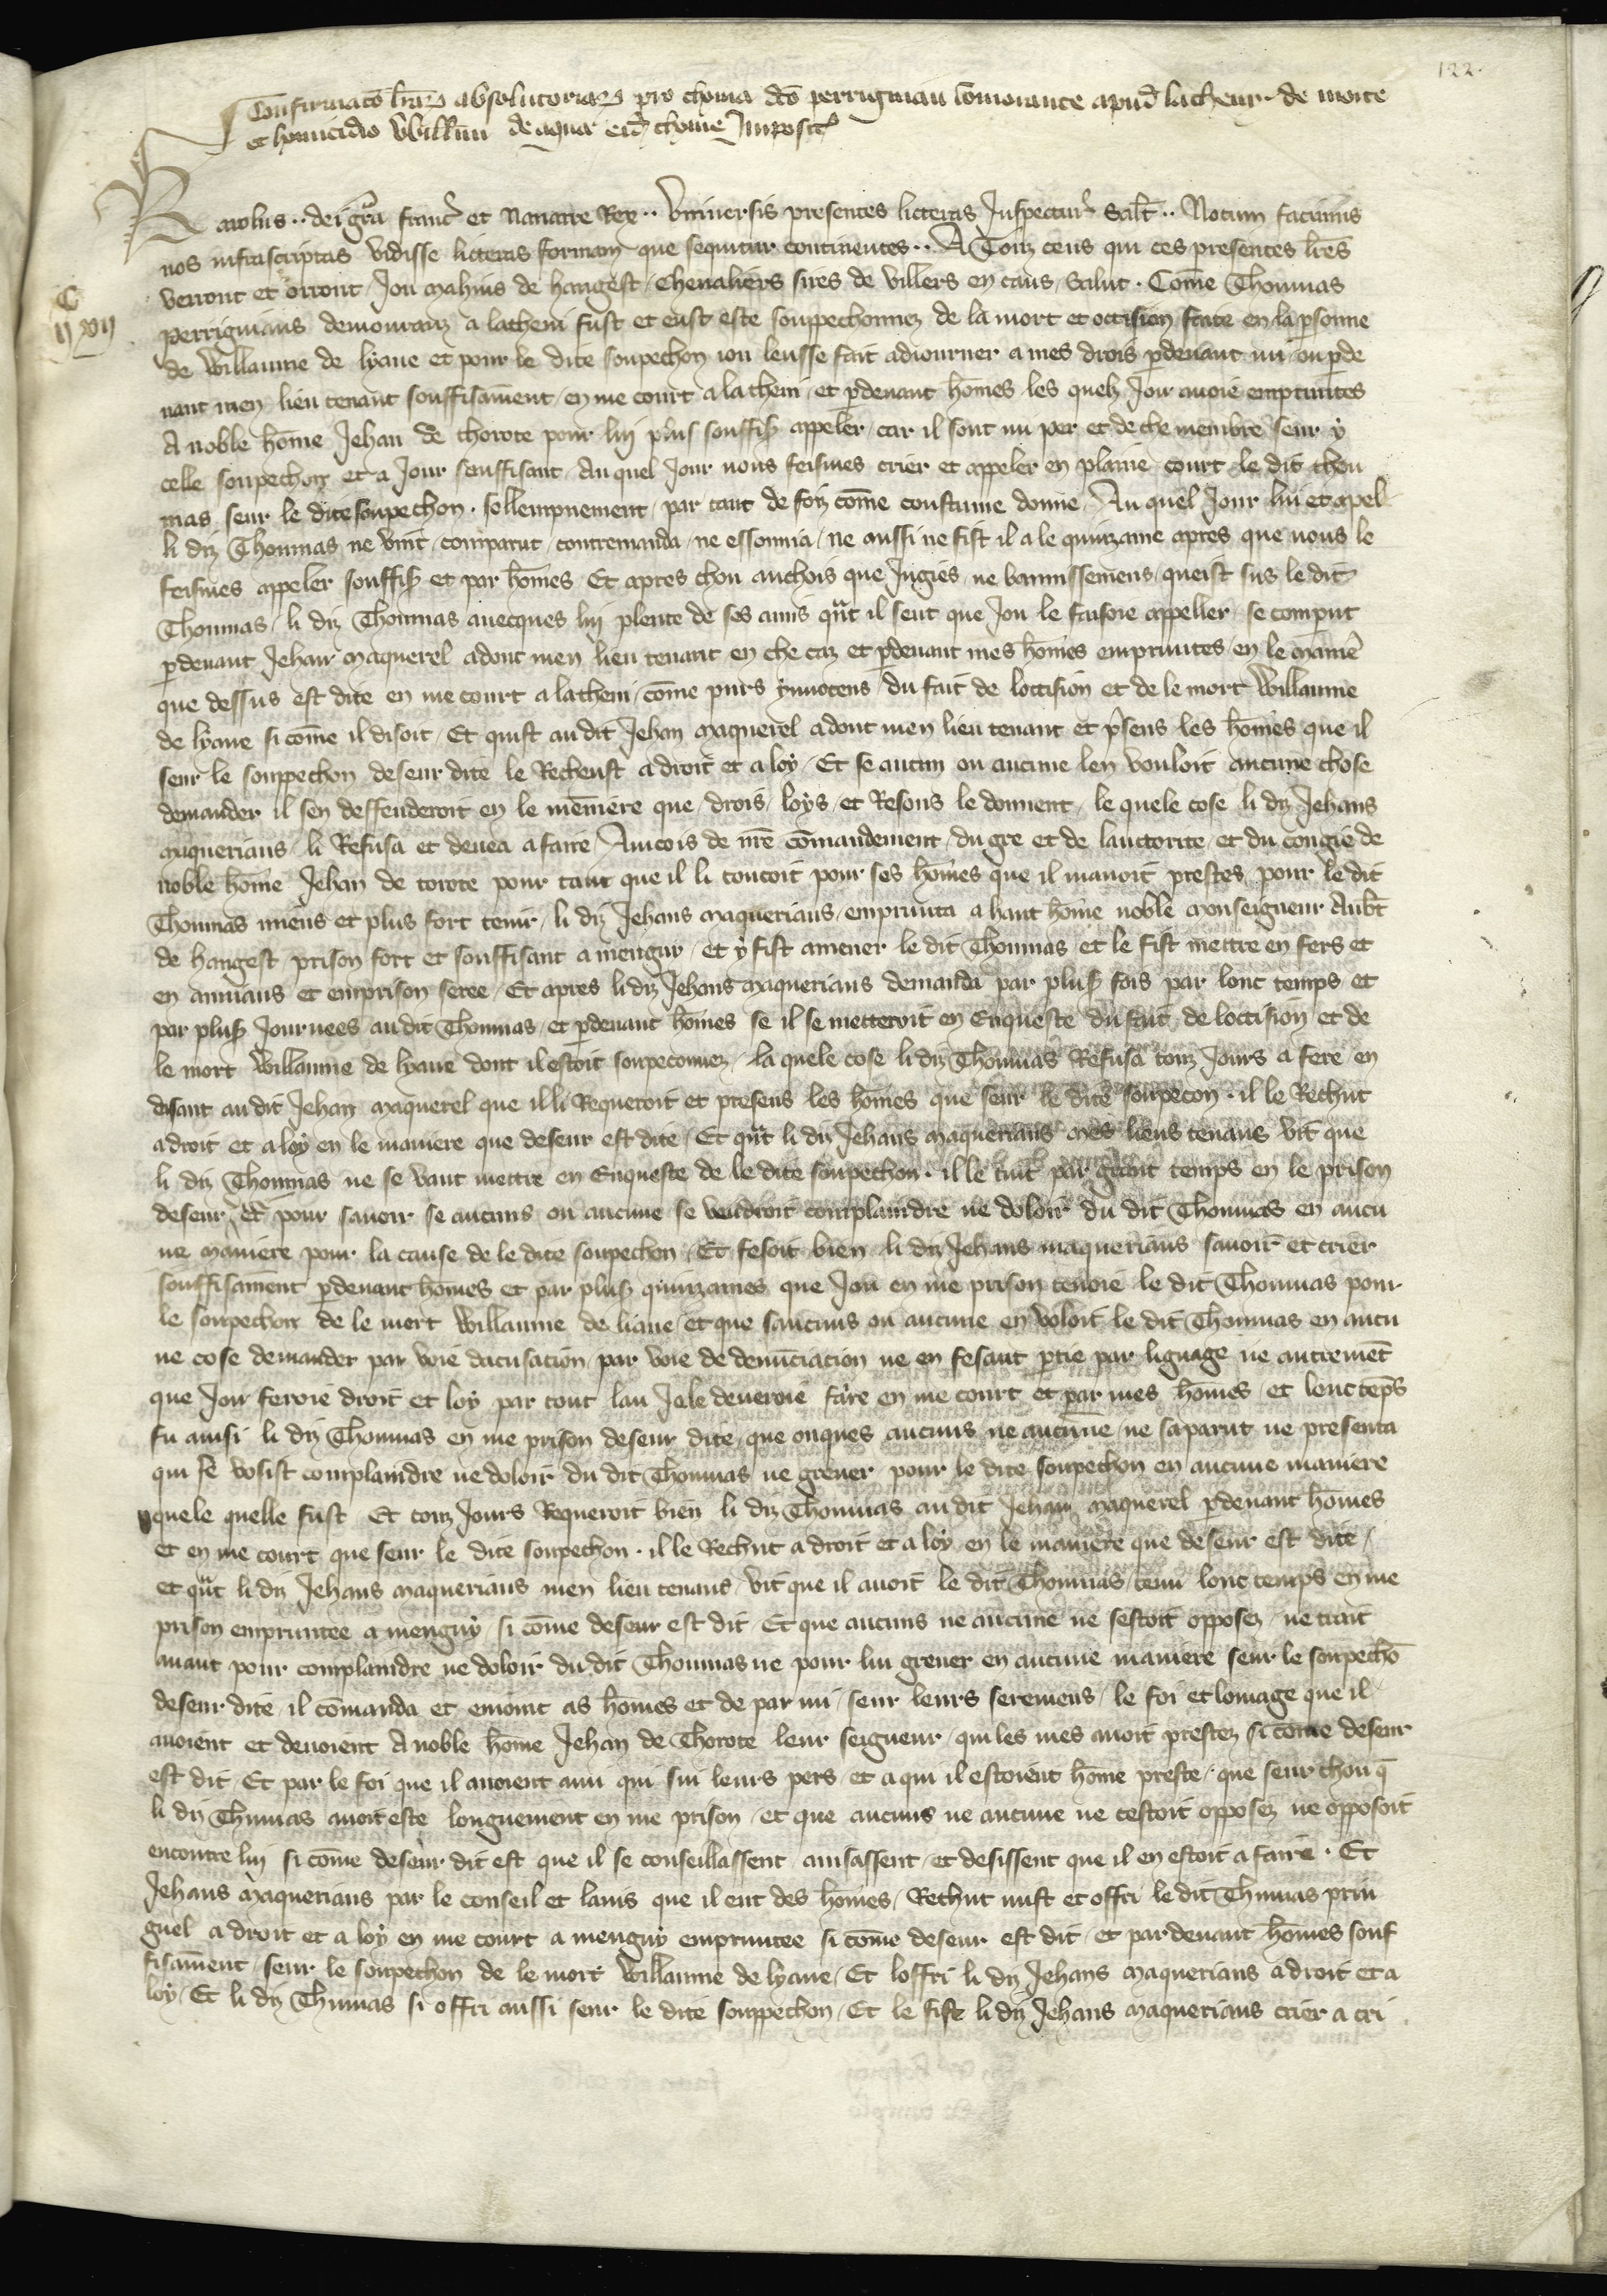 122.
Confirmatō lr̄arȝ absolutoriarȝ pro thoma dcō perrigniau cōmorante apud lacheni de morte
et homicidio Willmi de aqua eid thome Imposit
Karolus.. dei gr̄a franc̄ et Nauarre Rex.. Vniuersis presentes litteras Inspectur̄ Salt̄.. Notum facimus
nos infrascriptas vidisse litteras formam que sequitur continentes.. A Touz ceus qui ces presentes lr̄es
verront et orront Jou mahius de hangest cheualiers sires de villers en caus, Salut. Cōme Thoumas
C
II XVII
perrigniaus demouranz a lacheni fust et eust este soupechonnez de la mort et occision faite en la psonne
de Willaume de lyaue et pour le dite soupechon iou leusse fait adiourner a mes drois pdeuant mi ou pde
uant men lieu tenant souffisāment en me court a lacheni et pdeuant hōmes les quelz Jou auoie empruntes
A noble hōme Jehan de thorote pour luj plus souffiȝ appeler car il sont mi per et de che membre seur y
celle soupechon et a Jour seuffisant Au quel Jour nous feismes crier et appeler en plaine court le dit thou
mas seur le dite soupechon. sollempnement par tant de foiz cōme coustume donne Au quel Jour lui et apel
li diz Thoumas ne vint comparut contremanda ne essonnia ne aussi ne fist il a le quinzaine apres que nous le
feismes appeler souffiȝ et par hōmes Et apres chou anchois que Jugies ne bannissemens queist sus le dit
Thoumas li diz Thoumas auecques luj plente de ses amis qn̄t il seut que Jou le faisoie appeller se comput
pdeuant Jehan maquerel adont men lieu tenant en che caz et pdeuant mes hōmes empruntes en le manie
que dessus est dite en me court a lacheni cōme purs ynnocens du fait de loccision et de le mort Willaume
de lyaue si cōme il disoit Et quist au dit Jehan maquerel adont men lieu tenant et psens les hōmes que il
seur le souppechon deseur dite le Recheust a droit et a loy Et se aucun ou aucune len vouloit aucune chose
demander il sen deffenderoit en le meniere que drois loys et Resons le donnent le quele cose li diz Jehans
maqueriaus li Refusa et deuea a faire Aincois de nr̄e cōmandement du gre et de lauctorite et du congie de
noble hōme Jehan de torote pour tant que il li toucoit pour ses hōmes que il mauoit prestes pour le dit
Thoumas miens et plus fort tenir li diz Jehans maqueriaus emprunta a haut hōme noble monseigneur Aubt̄
de hangest prison fort et souffisant a menguy et y fist amener le dit Thoumas et le fist mettre en fers et
en anniaus et emprison seree Et apres li diz Jehans maqueriaus demanda par plusȝ fois par lonc temps et
par plusȝ Journees au dit Thoumas et pdeuant hōmes se il se metteroit en Enqueste du fait de loccision et de
le mort Willaume de lyaue dont il estoit soupeconnez la quele cose li diz Thoumas Refusa touz Jours a fere en
disant au dit Jehan maquerel que il li Requeroit et presens les hōmes que seur le dite soupecon. il le Rechut
a droit et a loy en le maniere que deseur est dite Et qn̄t li diz Jehans maqueriaus mes liens tenans vit que
li diz Thoumas ne se vaut mettre en Enqueste de le dite soupechon. il le tint par grant temps en le prison
deseur dt̄e pour sauoir se aucuns ou aucune se vendroit complaindre ne doloir du dit Thoumas en aucu
ne maniere pour la cause de le dite soupechon Et fesoit bien li diz Jehans maqueriaus sauoir et crier
souffisāment pdeuant hōmes et par plusȝ quinzaines que Jou en me prison tenoie le dit Thoumas pour
le soupechon de le mort Willaume de liaue et que saucuns ou aucune en voloit le dit Thoumas en aucu
ne cose demander par voie dacusation par voie de denunciacion ne en fesant ptie par lignage ne autremēt
que Jou feroie droit et loy par tout lau Je le deueroie faire en me court et par mes hōmes et lonc tēps
fu ainsi li diz Thoumas en me prison deseur dite que onques aucuns ne aucune ne saparut ne presenta
qui se vosist complaindre ne doloir du dit Thoumas ne greuer pour le dite soupechon en aucune maniere
quele quelle fust Et touz Jours Requeroit bien li diz Thoumas au dit Jehan maquerel pdeuant hōmes
et en me court que seur le dite soupechon. il le Rechut a droit et a loy en le maniere que deseur est dite
et qn̄t li diz Jehans maqueriaus men lieu tenans vit que il auoit le dit Thoumas tenu lonc temps en me
prison empruntee a menguy si cōme deseur est dit Et que aucuns ne aucune ne sestoit opposez ne trait
auant pour complaindre ne doloir du dit Thoumas ne pour lui greuer en aucune maniere seur le soupechō
deseur dite il cōmanda et enioint as hōmes et de par mi seur leurs seremens le foi et lomage que il
auoient et deuoient A noble hōme Jehan de Thorote leur seigneur qui les mes auoit prestez si cōme deseur
est dit Et par le foi que il auoient a mi qui sui leurs pers et a qui il estoient hōme preste que seur chou q̄
li diz Thumas auoit este longuement en me prison et que aucuns ne aucune ne cestoit opposez ne opposoit
encontre luj si cōme deseur dit est que il se conseillassent auisassent et desissent que il en estoit a faire. Et
Jehans maqueriaus par le conseil et lauis que il eut des hōmes Rechut mist et offri le dit Thumas prin
guel a droit et a loy en me court a menguy empruntee si cōme deseur est dit et pardeuant hōmes souf
fisāment seur le soupechon de le mort Willaume de lyaue Et loffri li diz Jehans maqueriaus a droit et a
loy Et li diz Thumas si offri aussi seur le dite souppechon Et le fist li diz Jehans maqueriaus crier a cri